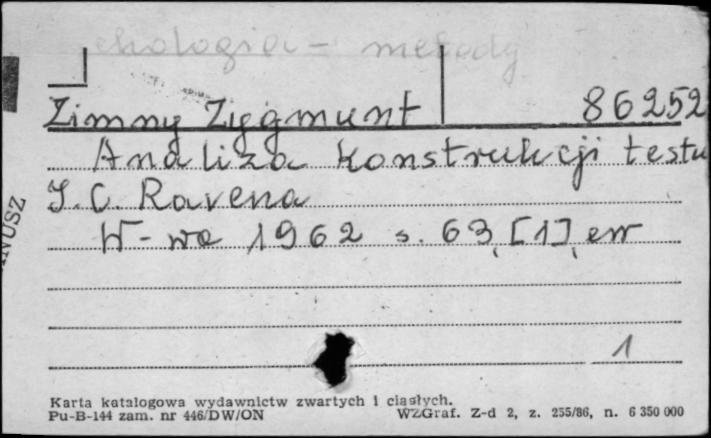 ekologia - metody
Zimny Zygmunt 86252
Analiza konstrukcji testu
J. C. Ravena
W-wa 1962 s. 63, [1], err
1
Karta katalogowa wydawnictw zwartych i ciągłych.
Pu-B-144 zam. nr 446/DW/ON WZGraf. Z-d 2, z. 255/86, n. 6 350 000